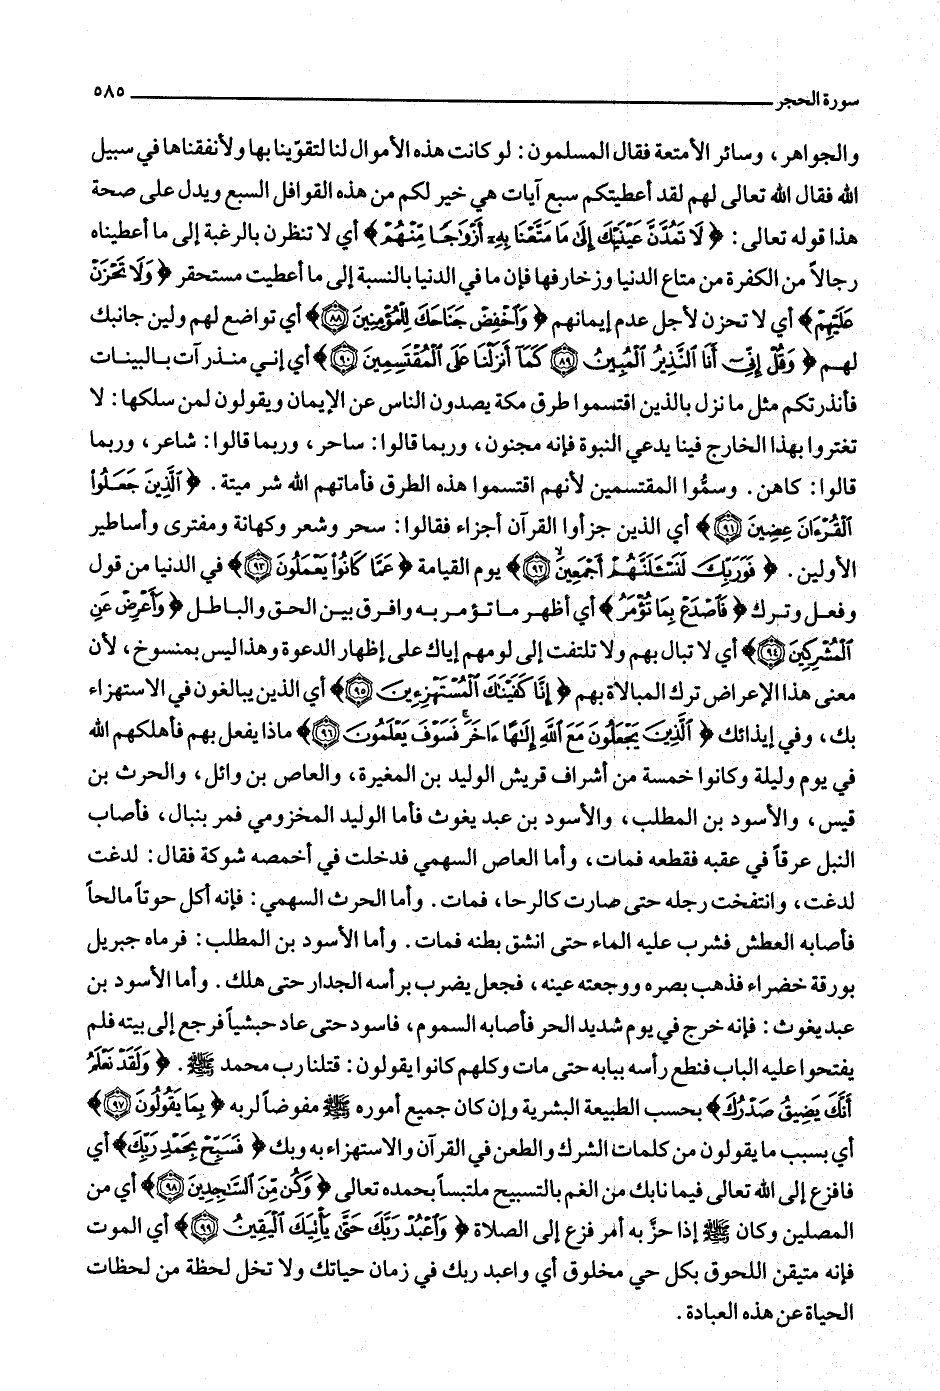 سورة الحجر ٥٨٥
والجواهر، وسائر الأمتعة فقال المسلمون: لو كانت هذه الأموال لنا لتقوّينا بها ولأنفقناها في سبيل
الله فقال الله تعالى لهم لقد أعطيتكم سبع آيات هي خير لكم من هذه القوافل السبع ويدل على صحة
هذا قوله تعالى: ﴿ لَا تَمُدَّنَّ عَيْنَيْكَ إِلَىٰ مَا مَتَّعْنَا بِهِۦٓ أَزْوَٰجًا مِّنْهُمْ ﴾ أي لا تنظرن بالرغبة إلى ما أعطيناه
رجالاً من الكفرة من متاع الدنيا وزخارفها فإن ما في الدنيا بالنسبة إلى ما أعطيت مستحقر ﴿ وَلَا تَحْزَنْ
عَلَيْهِمْ ﴾ أي لا تحزن لأجل عدم إيمانهم ﴿ وَٱخْفِضْ جَنَاحَكَ لِلْمُؤْمِنِينَ ٨٨ ﴾ أي تواضع لهم ولين جانبك
لهم ﴿ وَقُلْ إِنِّىٓ أَنَا ٱلنَّذِيرُ ٱلْمُبِينُ ٨٩ كَمَآ أَنزَلْنَا عَلَى ٱلْمُقْتَسِمِينَ ٩٠ ﴾ أي إني منذر آت بالبينات
فأنذرتكم مثل ما نزل بالذين اقتسموا طرق مكة يصدون الناس عن الإيمان ويقولون لمن سلكها: لا
تغتروا بهذا الخارج فينا يدعي النبوة فإنه مجنون، وربما قالوا: ساحر، وربما قالوا: شاعر، وربما
قالوا: كاهن. وسمُّوا المقتسمين لأنهم اقتسموا هذه الطرق فأماتهم الله شر ميتة. ﴿ ٱلَّذِينَ جَعَلُوا۟
ٱلْقُرْءَانَ عِضِينَ ٩١ ﴾ أي الذين جزأوا القرآن أجزاء فقالوا: سحر وشعر وكهانة ومفترى وأساطير
الأولين. ﴿ فَوَرَبِّكَ لَنَسْـَٔلَنَّهُمْ أَجْمَعِينَ ٩٢ ﴾ يوم القيامة ﴿ عَمَّا كَانُوا۟ يَعْمَلُونَ ٩٣ ﴾ في الدنيا من قول
وفعل وترك ﴿ فَٱصْدَعْ بِمَا تُؤْمَرُ ﴾ أي أظهر ما تؤمر به وافرق بين الحق والباطل ﴿ وَأَعْرِضْ عَنِ
ٱلْمُشْرِكِينَ ٩٤ ﴾ أي لا تبال بهم ولا تلتفت إلى لومهم إياك على إظهار الدعوة وهذا ليس بمنسوخ، لأن
معنى هذا الإعراض ترك المبالاة بهم ﴿ إِنَّا كَفَيْنَٰكَ ٱلْمُسْتَهْزِءِينَ ٩٥ ﴾ أي الذين يبالغون في الاستهزاء
بك، وفي إيذائك ﴿ ٱلَّذِينَ يَجْعَلُونَ مَعَ ٱللَّهِ إِلَٰهًا ءَاخَرَ ۚ فَسَوْفَ يَعْلَمُونَ ٩٦ ﴾ ماذا يفعل بهم فأهلكهم الله
في يوم وليلة وكانوا خمسة من أشراف قريش الوليد بن المغيرة، والعاص بن وائل، والحرث بن
قيس، والأسود بن المطلب، والأسود بن عبد يغوث فأما الوليد المخزومي فمر بنبال، فأصاب
النبل عرقاً في عقبه فقطعه فمات، وأما العاص السهمي فدخلت في أخمصه شوكة فقال: لدغت
لدغت، وانتفخت رجله حتى صارت كالرحا، فمات. وأما الحرث السهمي: فإنه أكل حوتاً مالحاً
فأصابه العطش فشرب عليه الماء حتى انشق بطنه فمات. وأما الأسود بن المطلب: فرماه جبريل
بورقة خضراء فذهب بصره ووجعته عينه، فجعل يضرب برأسه الجدار حتى هلك. وأما الأسود بن
عبد يغوث: فإنه خرج في يوم شديد الحر فأصابه السموم، فاسود حتى عاد حبشياً فرجع إلى بيته فلم
يفتحوا عليه الباب فنطع رأسه ببابه حتى مات وكلهم كانوا يقولون: قتلنا رب محمد ﷺ. ﴿ وَلَقَدْ نَعْلَمُ
أَنَّكَ يَضِيقُ صَدْرُكَ ﴾ بحسب الطبيعة البشرية وإن كان جميع أموره ﷺ مفوضاً لربه ﴿ بِمَا يَقُولُونَ ٩٧ ﴾
أي بسبب ما يقولون من كلمات الشرك والطعن في القرآن والاستهزاء به وبك ﴿ فَسَبِّحْ بِحَمْدِ رَبِّكَ ﴾ أي
فافزع إلى الله تعالى فيما نابك من الغم بالتسبيح ملتبساً بحمده تعالى ﴿ وَكُن مِّنَ ٱلسَّٰجِدِينَ ٩٨ ﴾ أي من
المصلين وكان ﷺ إذا حزَّ به أمر فزع إلى الصلاة ﴿ وَٱعْبُدْ رَبَّكَ حَتَّىٰ يَأْتِيَكَ ٱلْيَقِينُ ٩٩ ﴾ أي الموت
فإنه متيقن اللحوق بكل حي مخلوق أي واعبد ربك في زمان حياتك ولا تخل لحظة من لحظات
الحياة عن هذه العبادة.